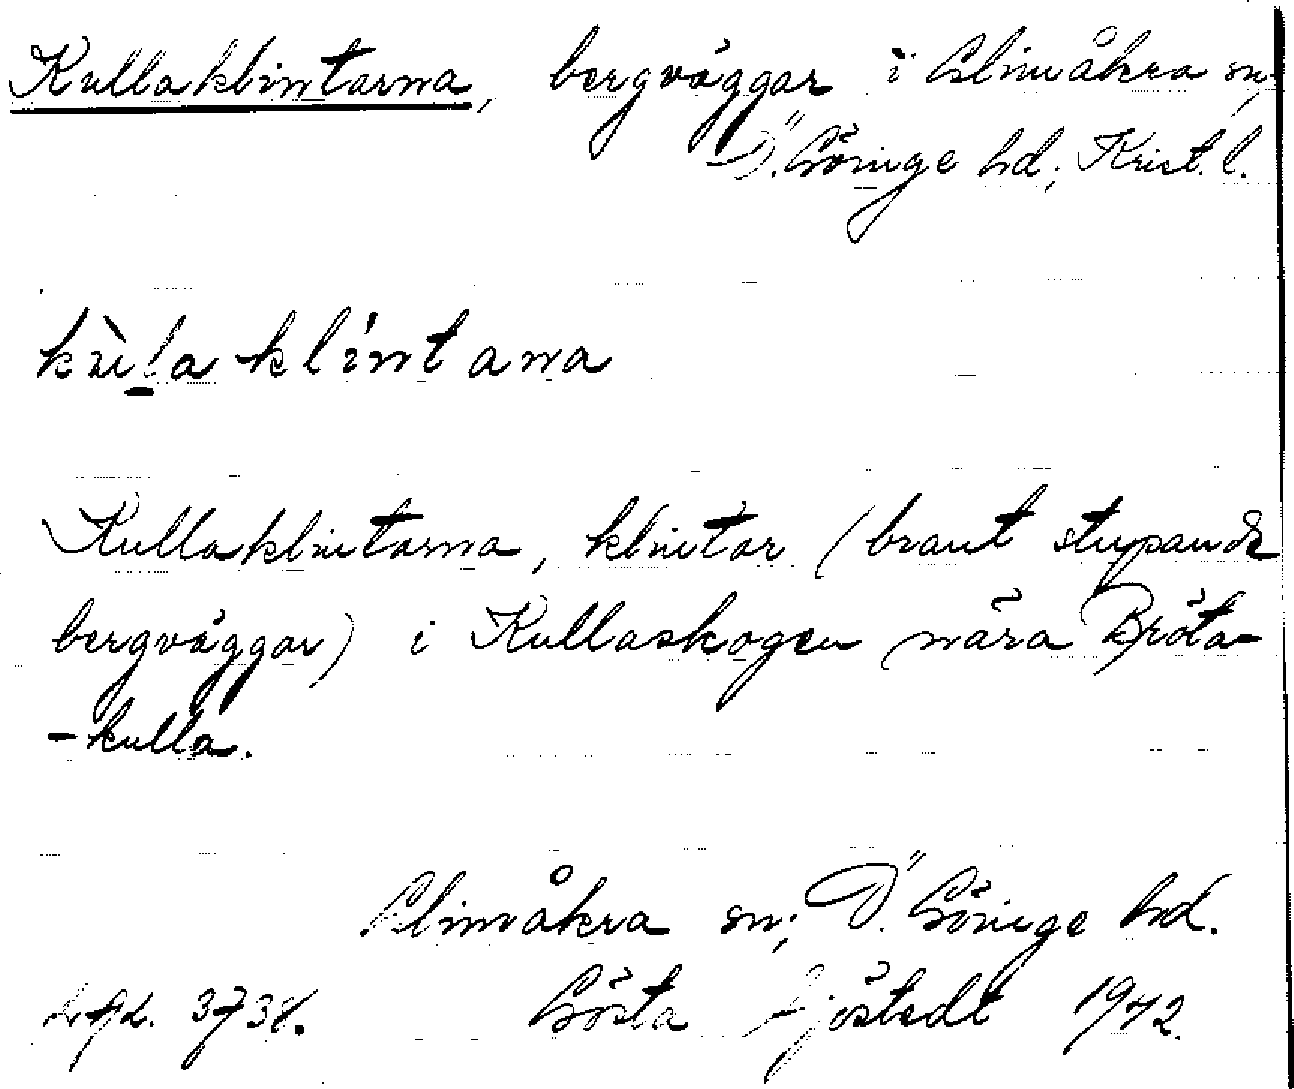 Kullaklintarna, bergväggar i Glimåkra sn,
Ö. Göinge hd; Krist. l.
kùl̠aklíntana
Kullaklintarna, klintar (brant stupande
bergväggar) i Kullaskogen nära Bröta-
-kulla.
Glimåkra sn; Ö. Göinge hd.
3738. Gösta Sjöstedt 1942.